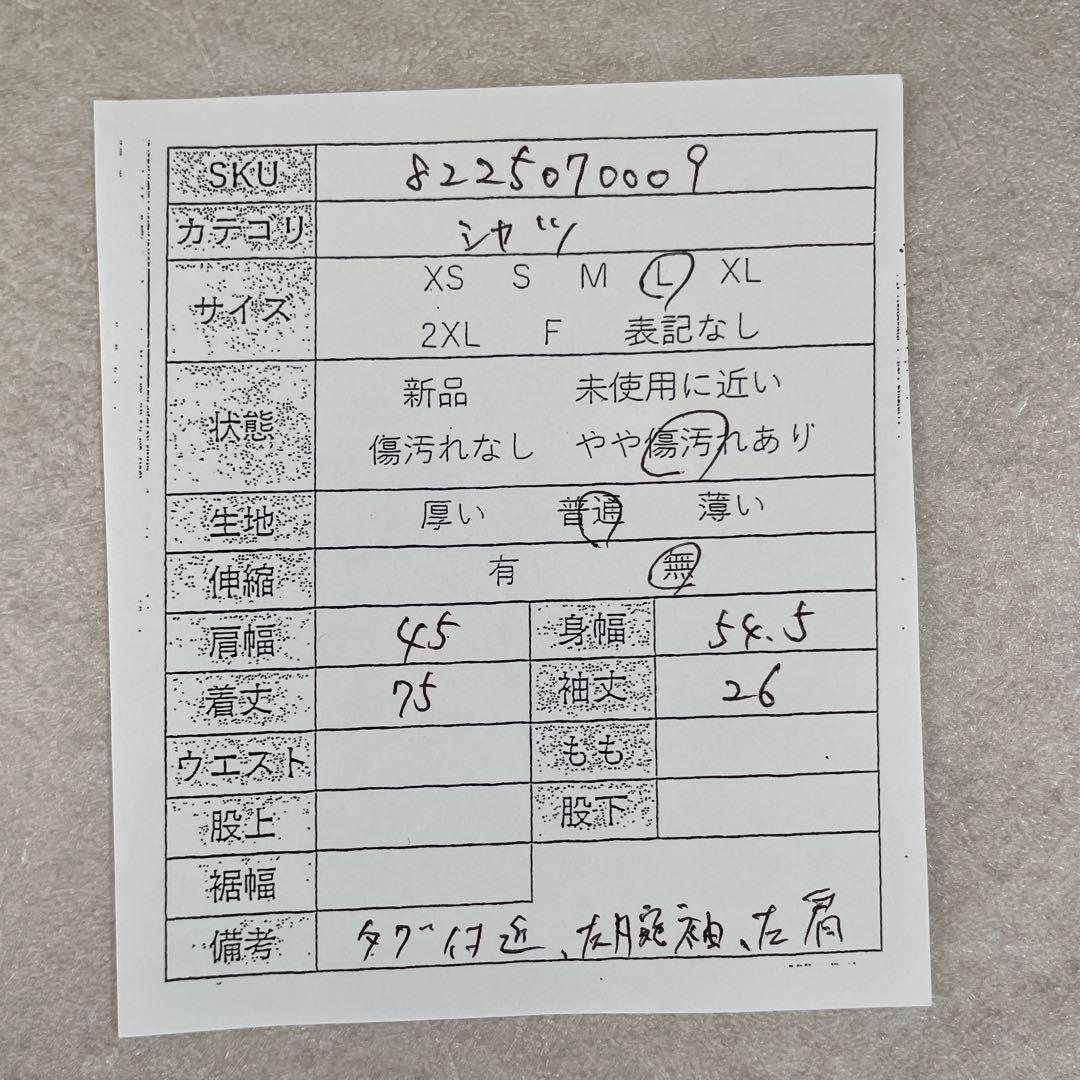 SKU 8225070009
カテゴリ シャツ
サイズ XS S M L XL
2XL F 表記なし
状態 新品 未使用に近い
傷汚れなし やや傷汚れあり
生地 厚い 普通 薄い
伸縮 有 無
肩幅 45 身幅 54.5
着丈 75 袖丈 26
ウエスト もも
股上 股下
裾幅
備考 タグ付近、左腕袖、左肩